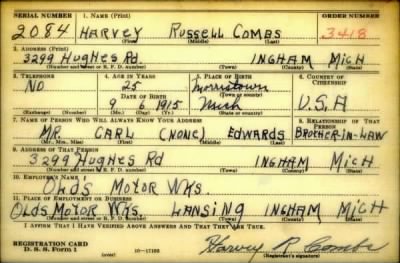 SERIAL NUMBER 1. NAME (Print) ORDER NUMBER
2084 HARVEY RUSSELL COMBS 3418
(First) (Middle) (Last)
2. ADDRESS (Print)
3299 Hughes Rd INGHAM MICH
(Number and street or R. F. D. number) (Town) (County) (State)
3. TELEPHONE 4. AGE IN YEARS 5. PLACE OF BIRTH 6. COUNTRY OF CITIZENSHIP
NO 25 Morristown
DATE OF BIRTH (Town or county)
9 6 1915 Mich U.S.A
(Exchange) (Number) (Mo.) (Day) (Yr.) (State or country)
7. NAME OF PERSON WHO WILL ALWAYS KNOW YOUR ADDRESS 8. RELATIONSHIP OF THAT PERSON
MR. CARL (NONE) EDWARDS BROTHER-IN-LAW
(Mr., Mrs., Miss) (First) (Middle) (Last)
9. ADDRESS OF THAT PERSON
3299 Hughes Rd INGHAM MICH
(Number and street or R. F. D. number) (Town) (County) (State)
10. EMPLOYER'S NAME
OLDS MOTOR WKS.
11. PLACE OF EMPLOYMENT OR BUSINESS
OLDS MOTOR WKS. LANSING INGHAM MICH
(Number and street or R. F. D. number) (Town) (County) (State)
I AFFIRM THAT I HAVE VERIFIED ABOVE ANSWERS AND THAT THEY ARE TRUE.
REGISTRATION CARD
D. S. S. Form 1 16—17105 Harvey R. Combs
(Registrant's signature)